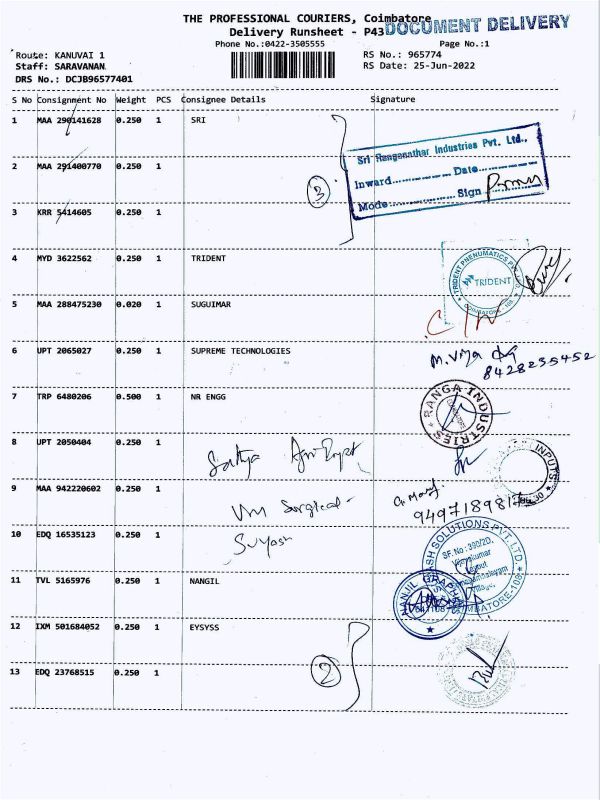 THE PROFESSIONAL COURIERS, Coimbatore
DOCUMENT DELIVERY
Delivery Runsheet - P43
Phone No.:0422-3505555
Page No.:1
Route: KANUVAI 1
RS No.: 965774
Staff: SARAVANAN.
RS Date: 25-Jun-2022
DRS No.: DCJB96577401
S No Consignment No Weight PCS Consignee Details Signature
1 MAA 290141628 0.250 1 SRI
Sri Ranganathar Industries Pvt. Ltd.,
Inward.............. Date..............
Mode.............. Sign
2 MAA 291400770 0.250 1
3
3 KRR 5414605 0.250 1
4 MYD 3622562 0.250 1 TRIDENT
TRIDENT PNEUMATICS PVT. LTD.
TRIDENT
COIMBATORE
5 MAA 288475230 0.020 1 SUGUIMAR
6 UPT 2065027 0.250 1 SUPREME TECHNOLOGIES
8428235452
7 TRP 6480206 0.500 1 NR ENGG
RANGA INDUSTRIES
8 UPT 2050404 0.250 1 Sathya
INPUTS
9 MAA 942220602 0.250 1 VM Surgical
10 EDQ 16535123 0.250 1 Suyash
ASH SOLUTIONS PVT. LTD.
SF.No: 390/2D,
Vijayakumar
Layout
COIMBATORE-108
11 TVL 5165976 0.250 1 NANGIL
NANJIL GRAPHICS
12 IXM 501684052 0.250 1 EYSYSS
2
13 EDQ 23768515 0.250 1